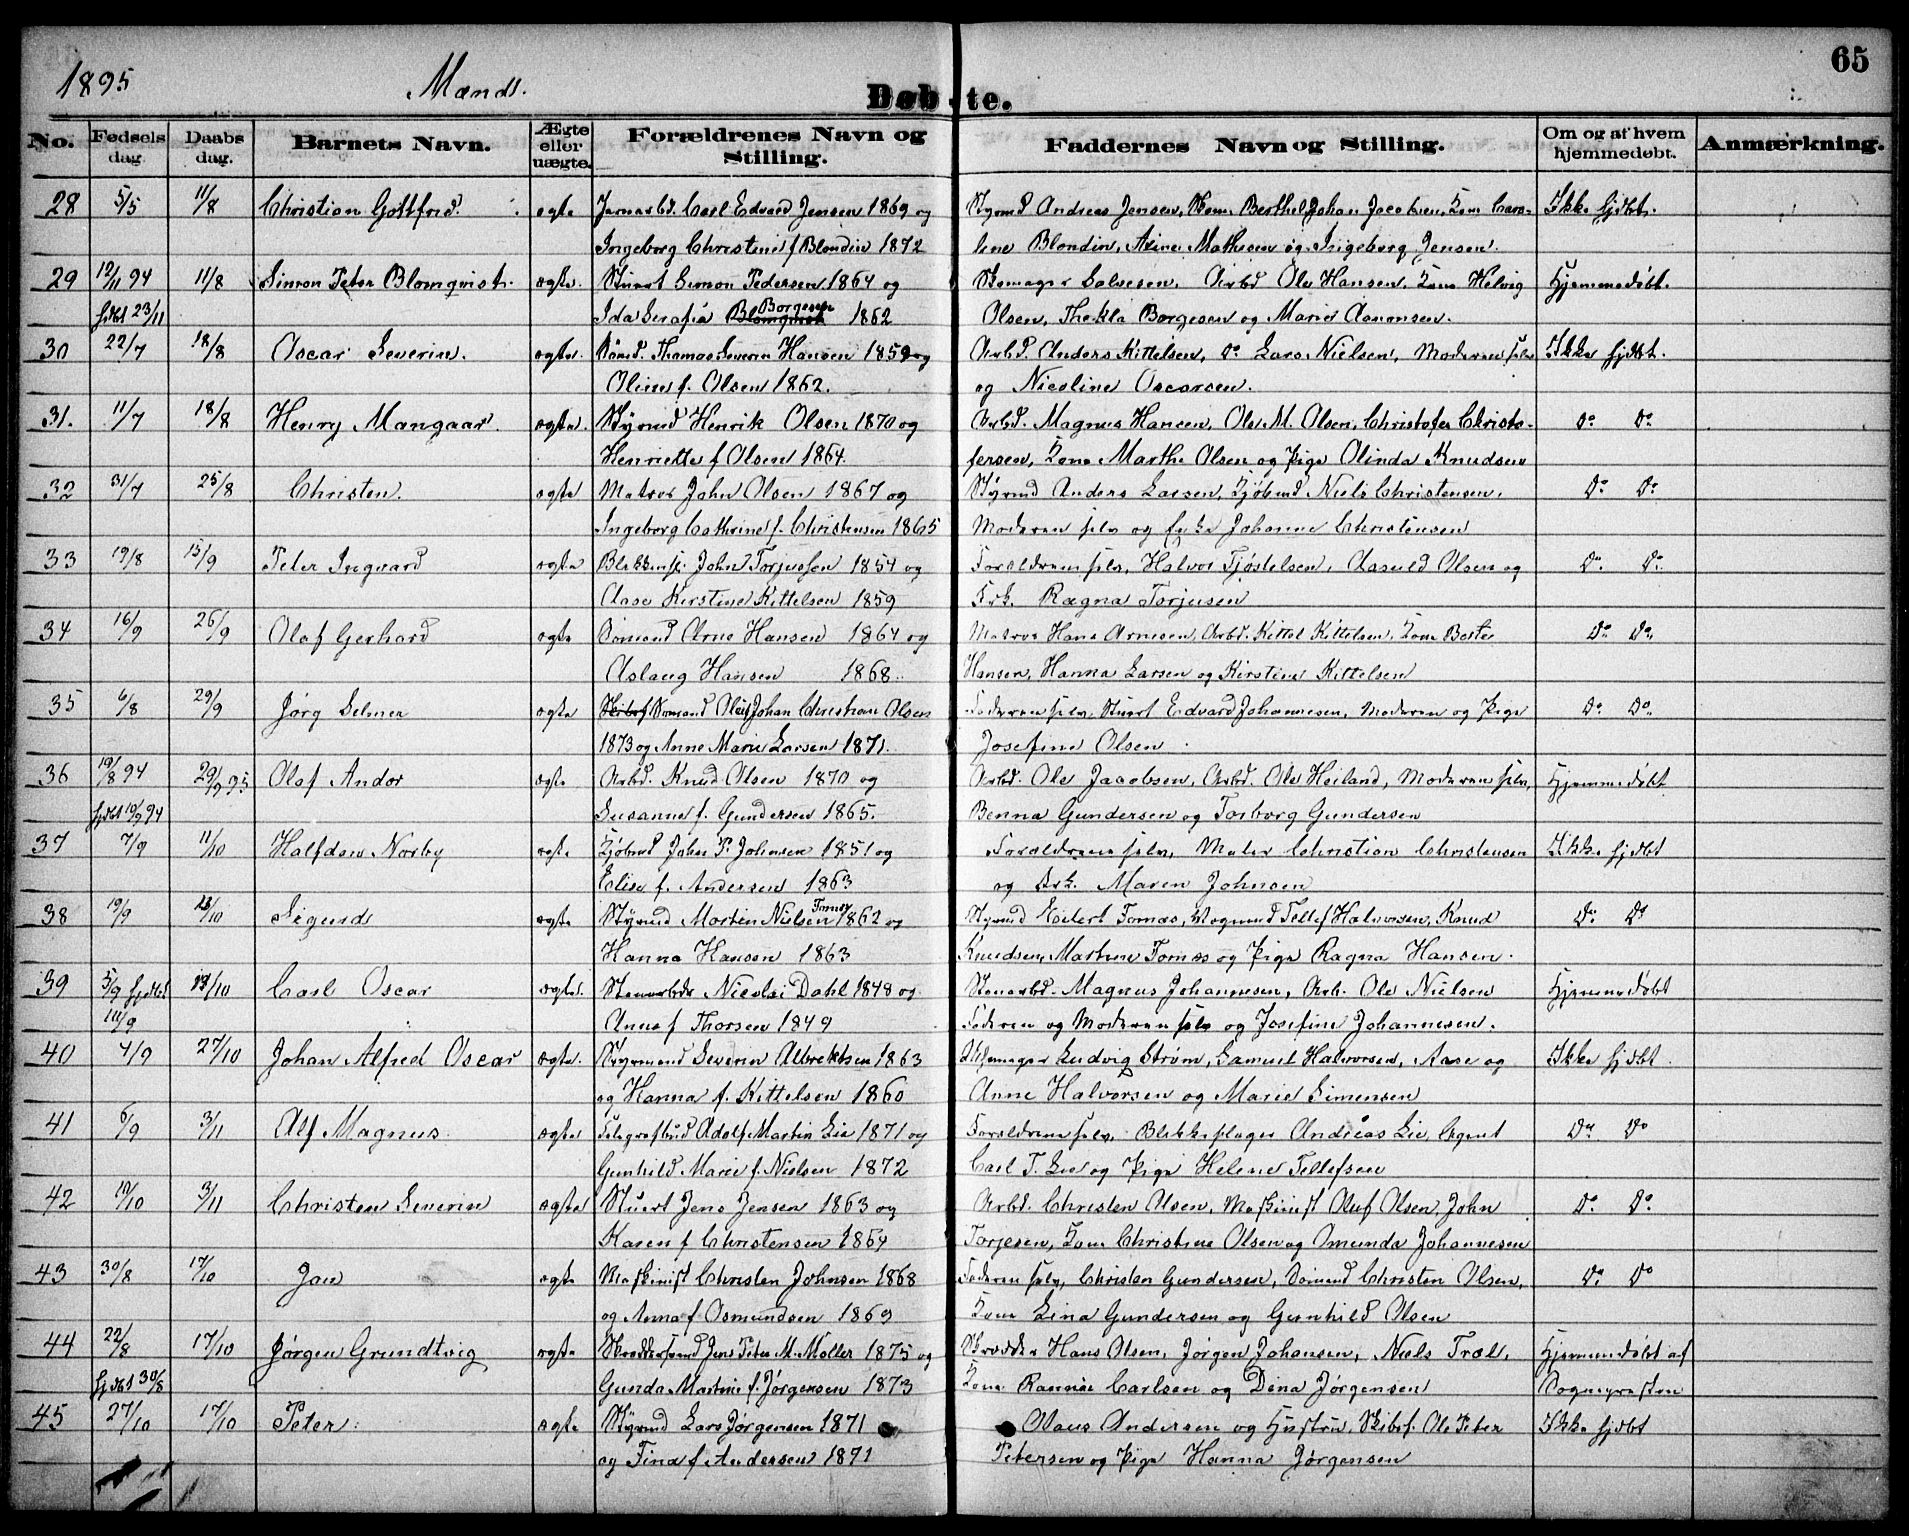 65
1895 Mænd.
Døbte.
No. Fødsels dag. Daabs dag. Barnets Navn. Ægte eller uægte. Forældrenes Navn og Stilling. Faddernes Navn og Stilling. Om og af hvem hjemmedøbt. Anmærkning.
28 5/5 11/8 Christian Gottfred. ægte Jernarbd. Carl Edvard Jensen 1869 og Styrmd Andreas Jensen, Berthel Johan Jacobsen, Kone Caro- Ikke hjdbt.
Ingeborg Christine f Blondin 1872 line Blondin, Mathisen og Ingeborg Jensen.
29 12/11 94 11/8 Simon Peter Blomqvist. ægte. Stuert Simon Pedersen 1864 og Skomager Salvesen, Arbd Ole Hansen, Kone Helvig Hjemmedøbt.
hjdbt 23/11 Ida Serafia Blomqvist Borgesen 1862 Olsen, Thekla Borgesen og Marie Aanonsen.
30 22/7 18/8 Oscar Severin. ægte. Sømd. Thomas Severin Hansen 1859 og Arbd. Anders Kittelsen, do Lars Nielsen, Moderen selv Ikke hjdbt.
Oline f. Olsen 1862. og Nicoline Oscarsen.
31. 11/7 18/8 Henry Mangaar. ægte. Styrmd Henrik Olsen 1870 og Arbd. Magnus Hansen, Ole M. Olsen, Christofer Christo- Do Do
Henriette f Olsen 1864. fersen, Kone Marthe Olsen og Pige Olinda Knudsen
32 31/7 25/8 Christen. ægte Matros John Olsen 1867 og Styrmd Anders Larsen, Kjøbmd Niels Christensen, Do Do
Ingeborg Cathrine f. Christensen 1865 Moderen selv og Enke Johanne Christensen
33 19/8 15/9 Peter Ingvard ægte Blikkensl. John Torjussen 1854 og Forældrene selv, Halvor Tjøstelsen, Aasuld Olsen og Do Do
Aase Kirstine Kittelsen 1859 Frk. Ragna Torjusen
34 16/9 26/9 Olaf Gerhard ægte Sømand Arne Hansen 1864 og Matros Hans Arnesen, Arbd. Kittel Kittelsen, Kone Berte Do Do
Aslaug Hansen 1868. Hansen, Hanna Larsen og Kirstine Kittelsen
35 6/8 29/9 Jørg Selmer ægte Skibsf Sømand Oluf Johan Christian Olsen Faderen selv, Stuert Edvard Johannesen, Moderen og Pige Do Do
1873 og Anne Marie Larsen 1871. Josefine Olsen
36 19/8 94 29/9 95 Olaf Andor ægte Arbd. Knud Olsen 1870 og Arbd. Ole Jacobsen, Arbd. Ole Heiland, Moderen selv, Hjemmedøbt
hjdbt 10/9 94 Susanne f. Gundersen 1865. Benna Gundersen og Torborg Gundersen
37 7/9 11/10 Halfdan Norby ægte Kjøbmd John P. Johnsen 1851 og Forældrene selv, Maler Christian Christensen Ikke hjdbt
Elise f. Andersen 1863 og Frk. Maren Johnsen
38 19/9 13/10 Sigurd ægte Styrmd Morten Nielsen Fornæs 1862 og Styrmd Eilert Fornæs, Vognmd Tellef Halvorsen, Knud Do Do
Hanna Hansen 1863 Knudsen, Martine Fornæs og Pige Ragna Hansen.
39 5/9 hjdbt 13/10 Carl Oscar ægte. Stenarbdr Nicolai Dahl 1848 og Stenarbd. Magnus Johannesen, Arb. Ole Nielsen Hjemmedøbt
10/9 Anne f Thorsen 1849 Faderen og Moderen selv og Josefine Johannesen.
40 4/9 27/10 Johan Alfred Oscar ægte. Styrmand Severin Albrektsen 1863 Skomager Ludvig Strøm, Samuel Halvorsen, Aase og Ikke hjdbt.
og Hanna f. Kittelsen 1860 Anne Halvorsen og Marie Simensen
41 6/9 3/11 Alf Magnus ægte Telegrafbud Adolf Martin Lie 1871 og Forældrene selv, Blikkeslager Andreas Lie, Agent Do Do
Gunhild Marie f. Nielsen 1872 Carl T. Lie og Pige Helene Tellefsen
42 19/10 3/11 Christen Severin ægte Stuert Jens Jensen 1863 og Arbd. Christen Olsen, Maskinist Oluf Olsen, John Do Do
Karen f Christensen 1864 Torjesen, Kone Christine Olsen og Omunda Johannesen
43 30/8 17/10 Jan ægte Maskinist Christen Johnsen 1868 Faderen selv, Christen Gundersen, Sømd Christen Olsen, Do Do
og Anna f Osmundsen 1869 Kone Lina Gundersen og Gunhild Olsen
44 22/8 17/10 Jørgen Grundtvig ægte Skræddersvend Jens Peter M. Møller 1875 og Skrædder Hans Olsen, Jørgen Johansen, Niels Træl. Hjemmedøbt af
hjdbt 30/8 Gunda Martine f. Jørgensen 1873 Kone Rannie Carlsen og Dina Jørgensen Sognepresten
45 27/10 17/10 Peter. ægte Styrmd Lars Jørgensen 1871 Olaus Andersen og Hustru, Skibsf. Ole Peter Ikke hjdbt
og Tina f Andersen 1871 Petersen og Pige Hanna Jørgensen